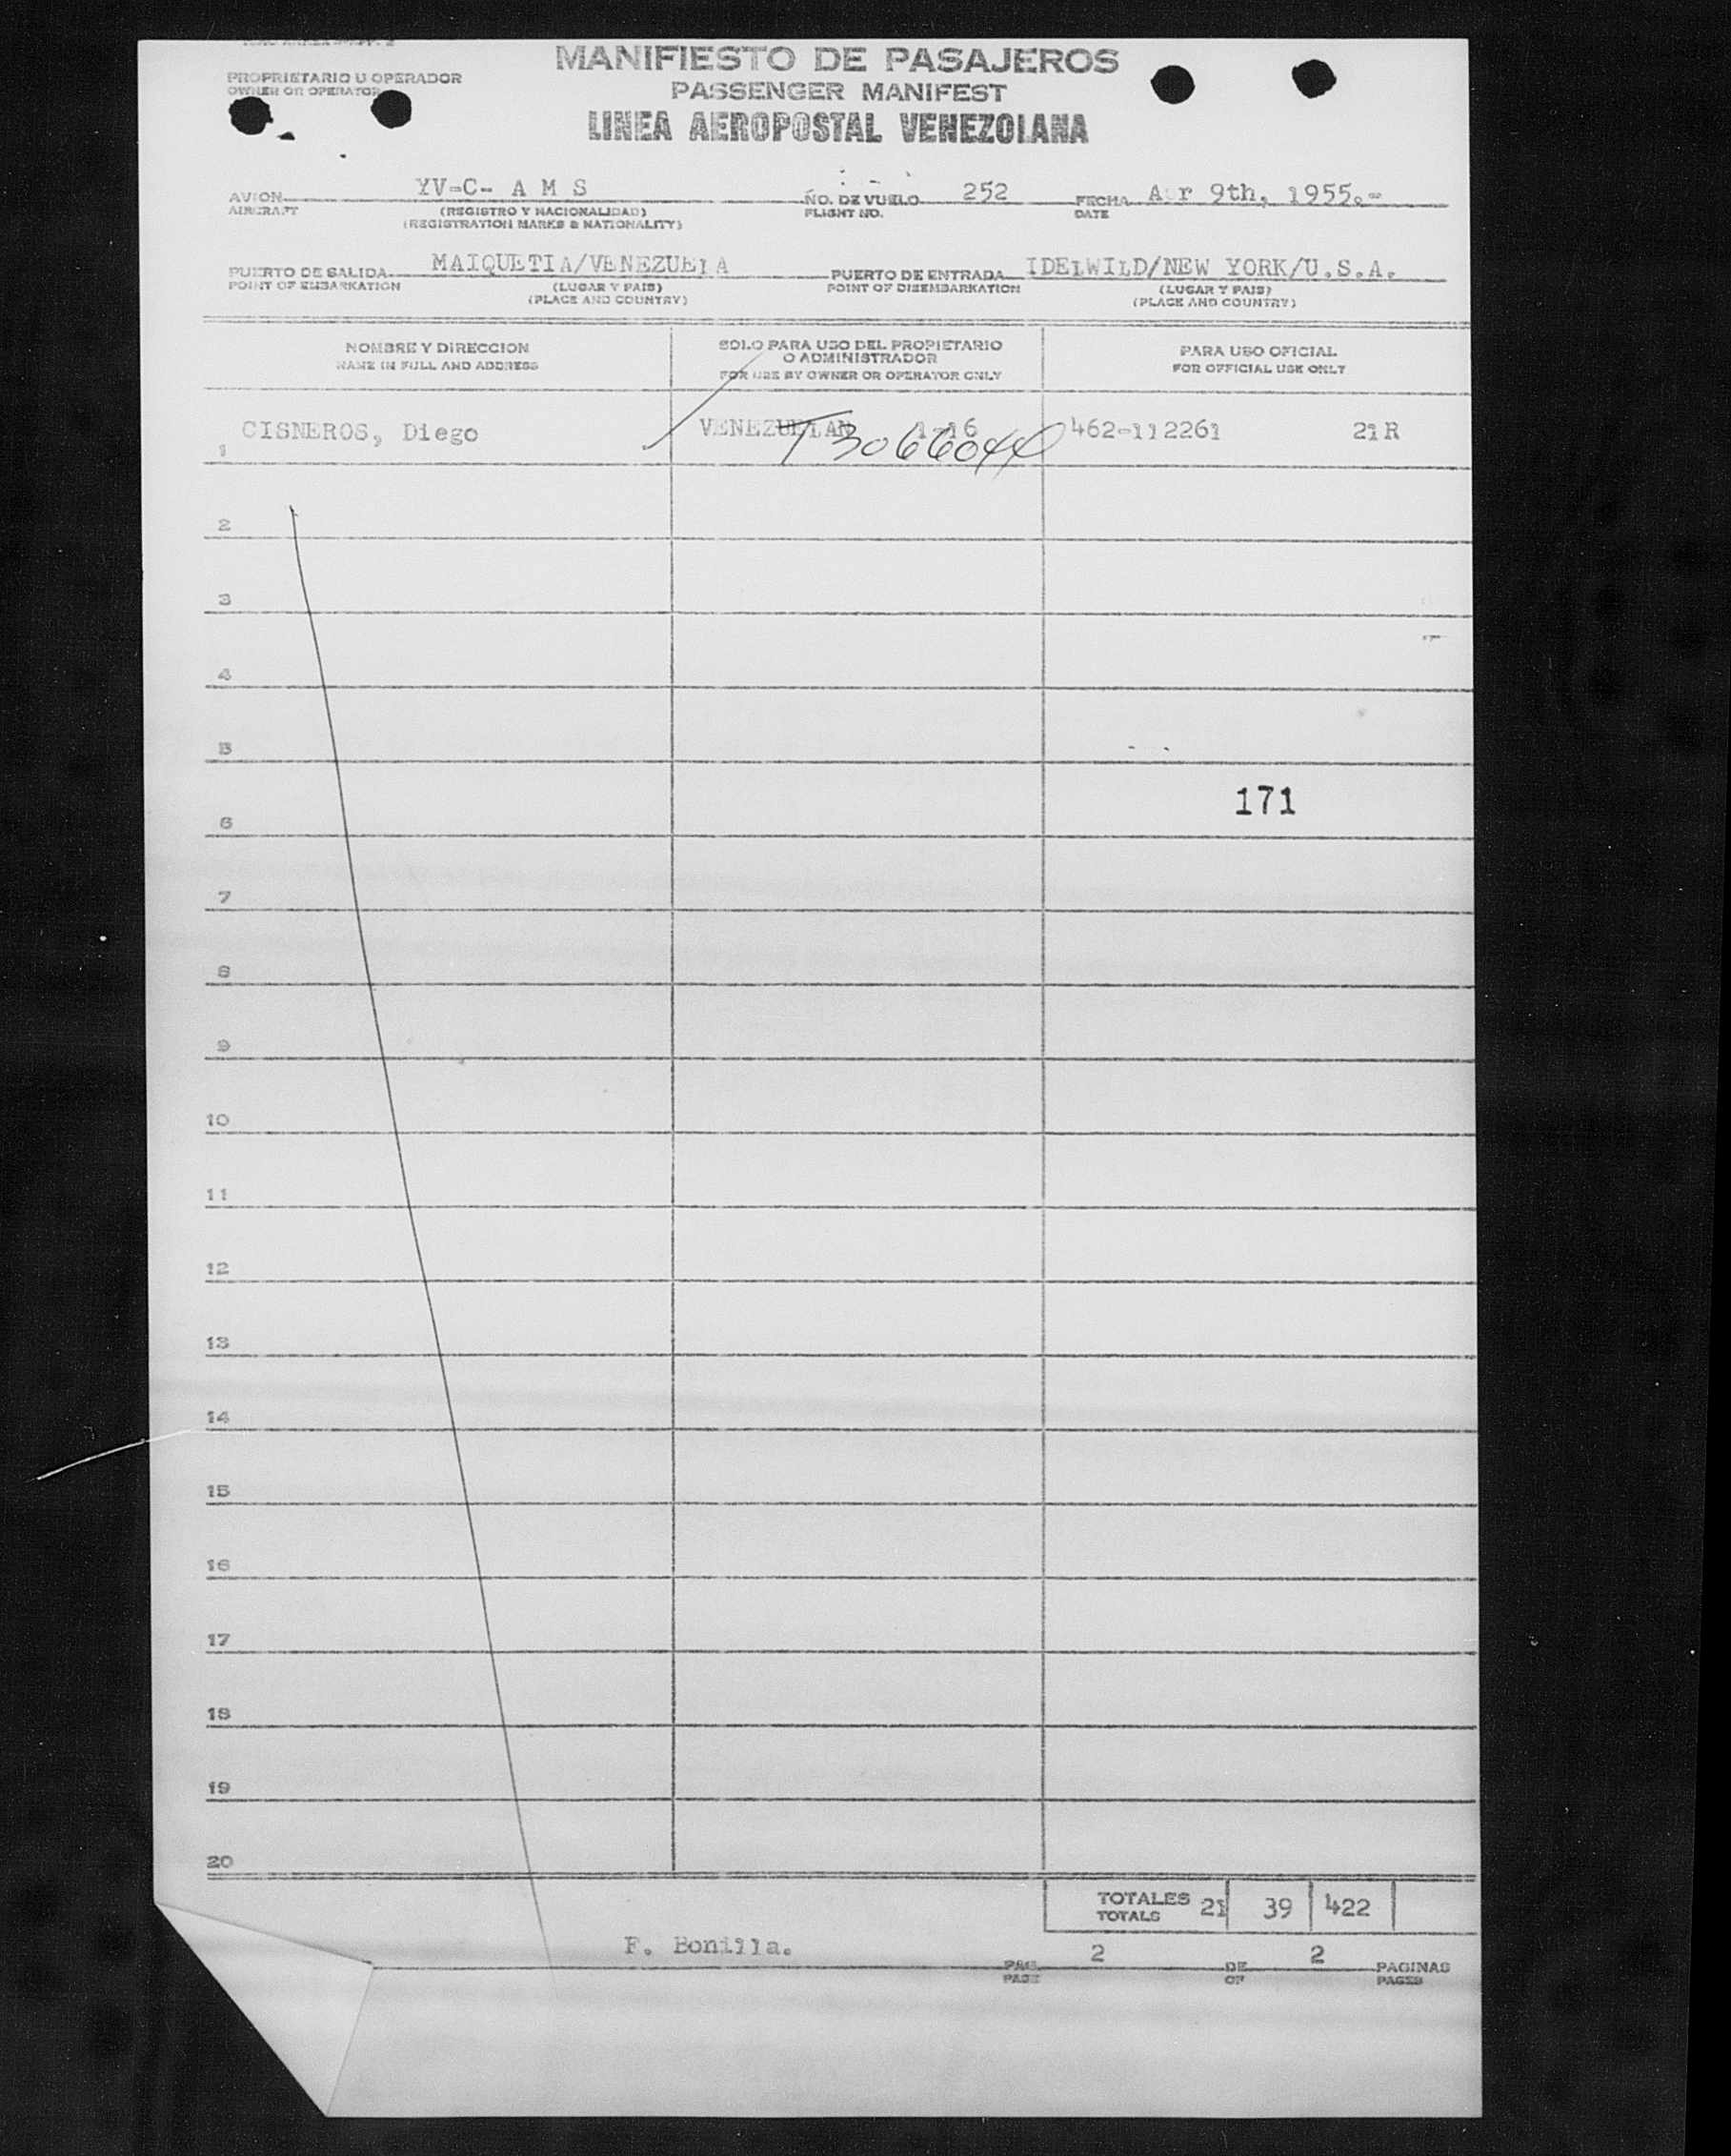 MANIFIESTO DE PASAJEROS
PROPRIETARIO U OPERADOR
OWNER OR OPERATOR
PASSENGER MANIFEST
LINEA AEROPOSTAL VENEZOLANA
AVION YV-C- A M S NO. DE VUELO 252 FECHA A r 9th, 1955.-
AIRCRAFT (REGISTRO Y NACIONALIDAD) FLIGHT NO. DATE
(REGISTRATION MARKS & NATIONALITY)
PUERTO DE SALIDA MAIQUETIA/VENEZUELA PUERTO DE ENTRADA IDELWILD/NEW YORK/U.S.A.
POINT OF EMBARKATION (LUGAR Y PAIS) POINT OF DISEMBARKATION (LUGAR Y PAIS)
(PLACE AND COUNTRY) (PLACE AND COUNTRY)
NOMBRE Y DIRECCION SOLO PARA USO DEL PROPIETARIO O ADMINISTRADOR PARA USO OFICIAL
NAME IN FULL AND ADDRESS FOR USE BY OWNER OR OPERATOR ONLY FOR OFFICIAL USE ONLY
1 CISNEROS, Diego VENEZUELAN 1-16 462-112261 21R
T3066044
2
3
4
5
171
6
7
8
9
10
11
12
13
14
15
16
17
18
19
20
TOTALES 21 39 422
TOTALS
F. Bonilla.
PAG. 2 DE 2 PAGINAS
PAGE OF PAGES